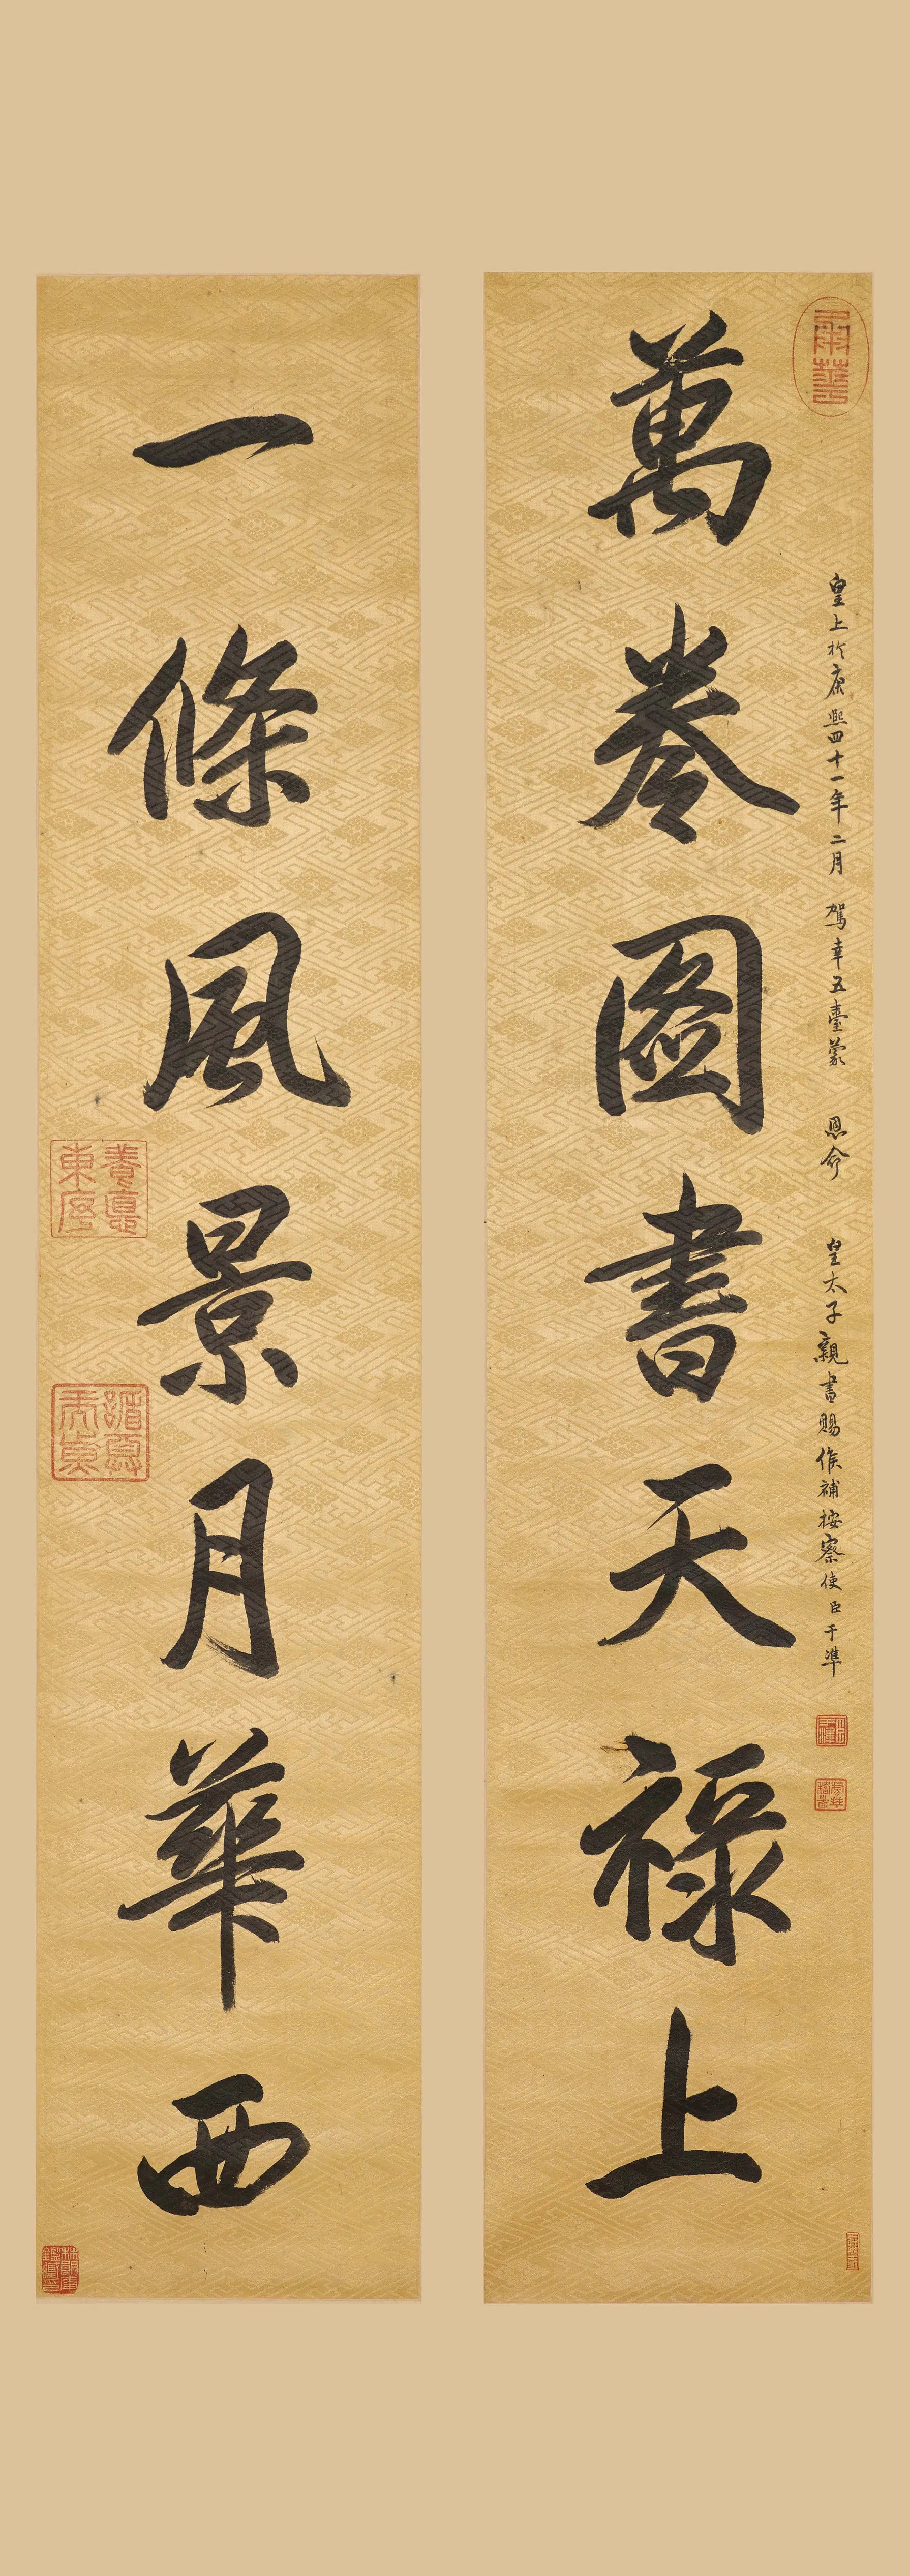 萬卷圖書天祿上
皇上於康熙四十一年二月 駕幸五臺蒙 恩命 皇太子親書賜候補按察使臣于準
一條風景月華西